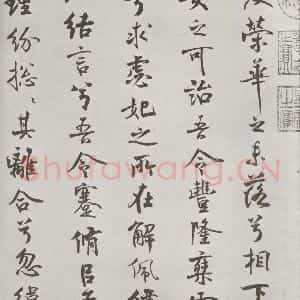 及榮華之未落兮相下
女之可詒吾令豐隆椉
兮求虙妃之所在解佩纕
結言兮吾令蹇脩㠯為
理紛総〻其離合兮忽緯
Shufawang.CN